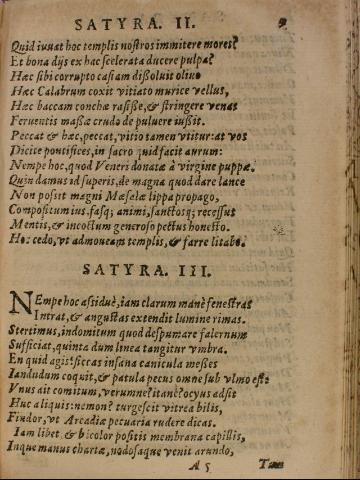 SATYRA. II. 9
Quid iuuat hoc templis nostros immitere mores?
Et bona dijs ex hac scelerata ducere pulpa?
Hæc sibi corrupto casiam dissoluit oliuo
Hæc Calabrum coxit vitiato murice vellus,
Hæc baccam conchæ rasisse, & stringere venas
Feruentis massæ crudo de puluere iussit.
Peccat & hæc, peccat, vitio tamen vtitur: at vos
Dicite pontifices, in sacro quid facit aurum:
Nempe hoc, quod Veneri donatæ à virgine puppæ.
Quin damus id superis, de magna quod dare lance
Non possit magni Mæsalæ lippa propago,
Compositum ius, fasq; animi, sanctosq; recessus
Mentis, & incoctum generoso pectus honesto.
Hoc cedo, vt admoueam templis, & farre litabo.
SATYRA. III.
NEmpe hoc assiduè, iam clarum manè fenestras
Intrat, & angustas extendit lumine rimas.
Stertimus, indomitum quod despumare falernum
Sufficiat, quinta dum linea tangitur vmbra.
En quid agis? siccas insana canicula messes
Iandudum coquit, & patula pecus omne sub vlmo est:
Vnus ait comitum, verumne? itanè? ocyus adsit
Huc aliquis: nemon? turgescit vitrea bilis,
Findor, vt Arcadiæ pecuaria rudere dicas.
Iam libet, & bicolor positis membrana capillis,
Inque manus chartæ, nodosaque venit arundo,
A 5 Tum